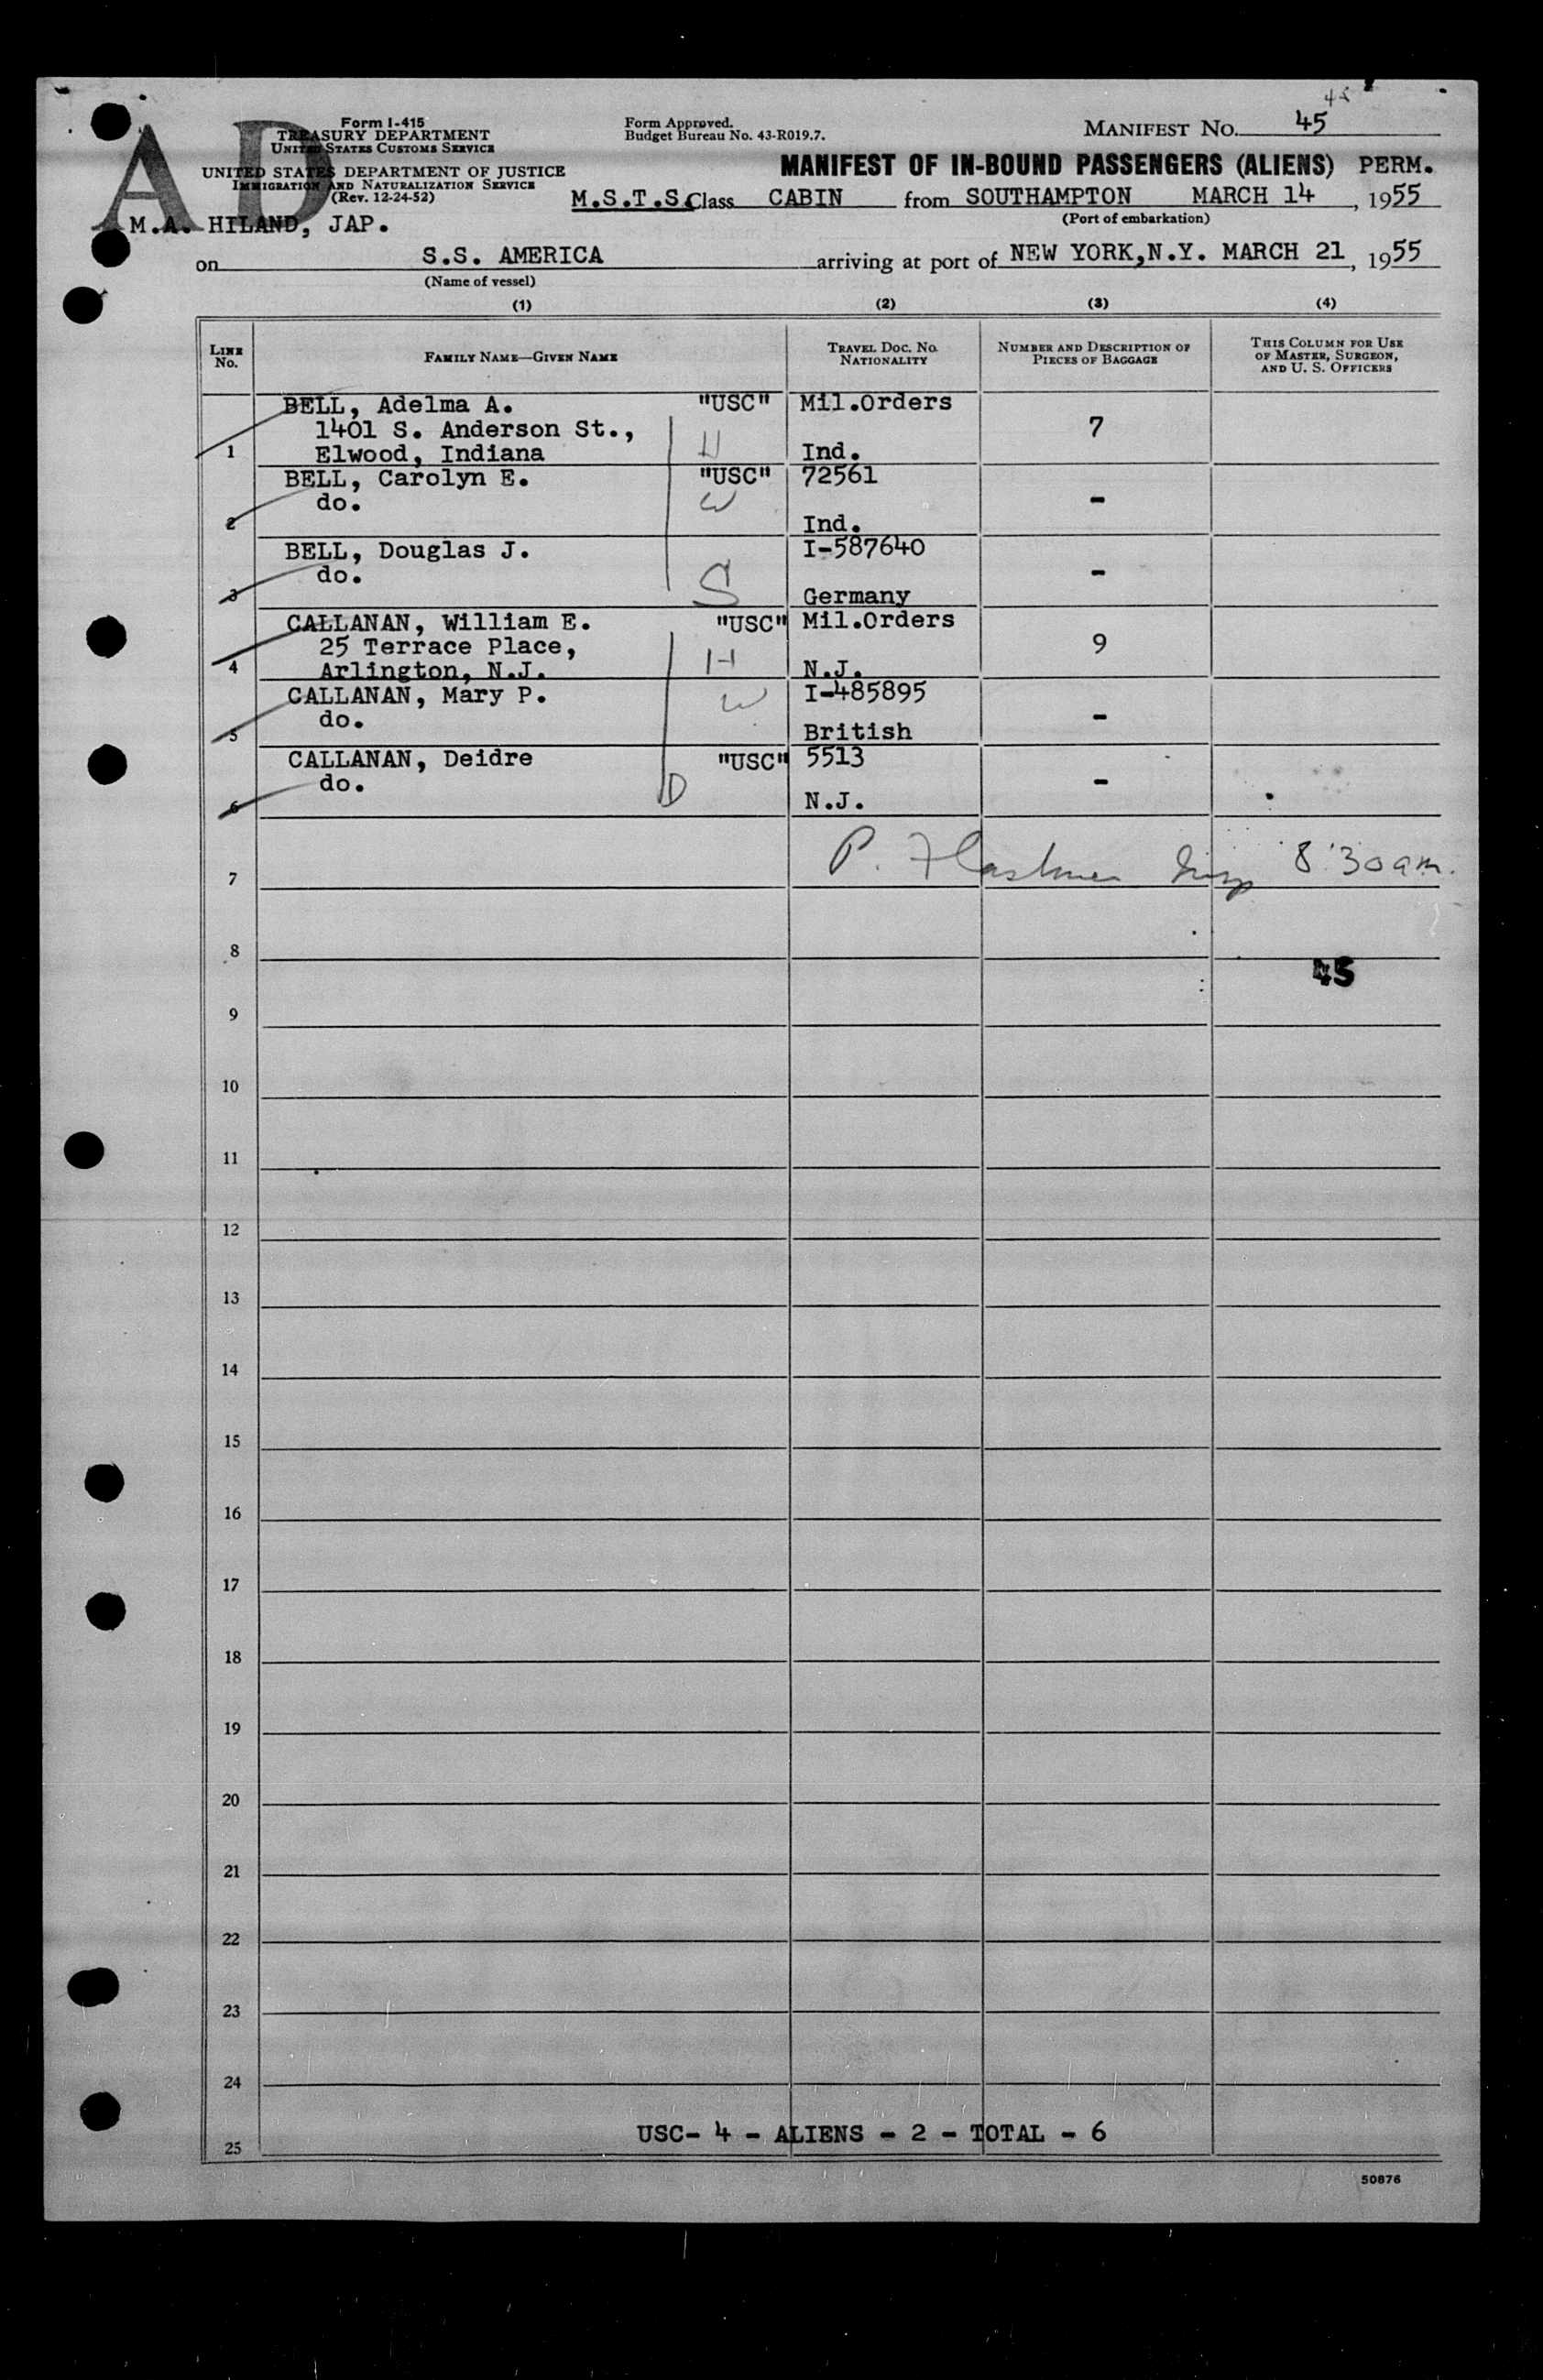 45
AD
Form I-415
TREASURY DEPARTMENT
UNITED STATES CUSTOMS SERVICE
UNITED STATES DEPARTMENT OF JUSTICE
IMMIGRATION AND NATURALIZATION SERVICE
(Rev. 12-24-52)
Form Approved.
Budget Bureau No. 43-R019.7.
MANIFEST NO. 45
MANIFEST OF IN-BOUND PASSENGERS (ALIENS) PERM.
M.S.T.S. Class CABIN from SOUTHAMPTON MARCH 14, 1955
(Port of embarkation)
M.A. HILAND, JAP.
on S.S. AMERICA arriving at port of NEW YORK,N.Y. MARCH 21, 1955
(Name of vessel)
(1) (2) (3) (4)
LINE No. FAMILY NAME—GIVEN NAME TRAVEL DOC. NO. NATIONALITY NUMBER AND DESCRIPTION OF PIECES OF BAGGAGE THIS COLUMN FOR USE OF MASTER, SURGEON, AND U. S. OFFICERS
BELL, Adelma A. "USC" Mil.Orders
1401 S. Anderson St., H 7
1 Elwood, Indiana Ind.
BELL, Carolyn E. "USC" 72561
do. W -
2 Ind.
BELL, Douglas J. I-587640
do. S -
3 Germany
CALLANAN, William E. "USC" Mil.Orders
25 Terrace Place, H 9
4 Arlington, N.J. N.J.
CALLANAN, Mary P. W I-485895
do. -
5 British
CALLANAN, Deidre "USC" 5513
do. D -
6 N.J.
P. 8:30am.
7
8
45
9
10
11
12
13
14
15
16
17
18
19
20
21
22
23
24
USC- 4 - ALIENS - 2 - TOTAL - 6
25
50876